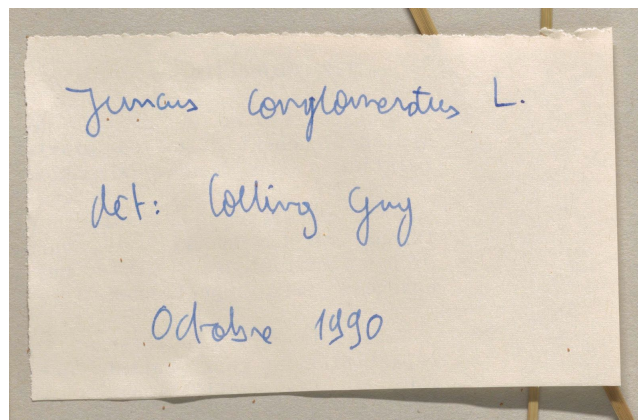 Juncus conglomeratus L.
det: Colling Guy
Octobre 1990